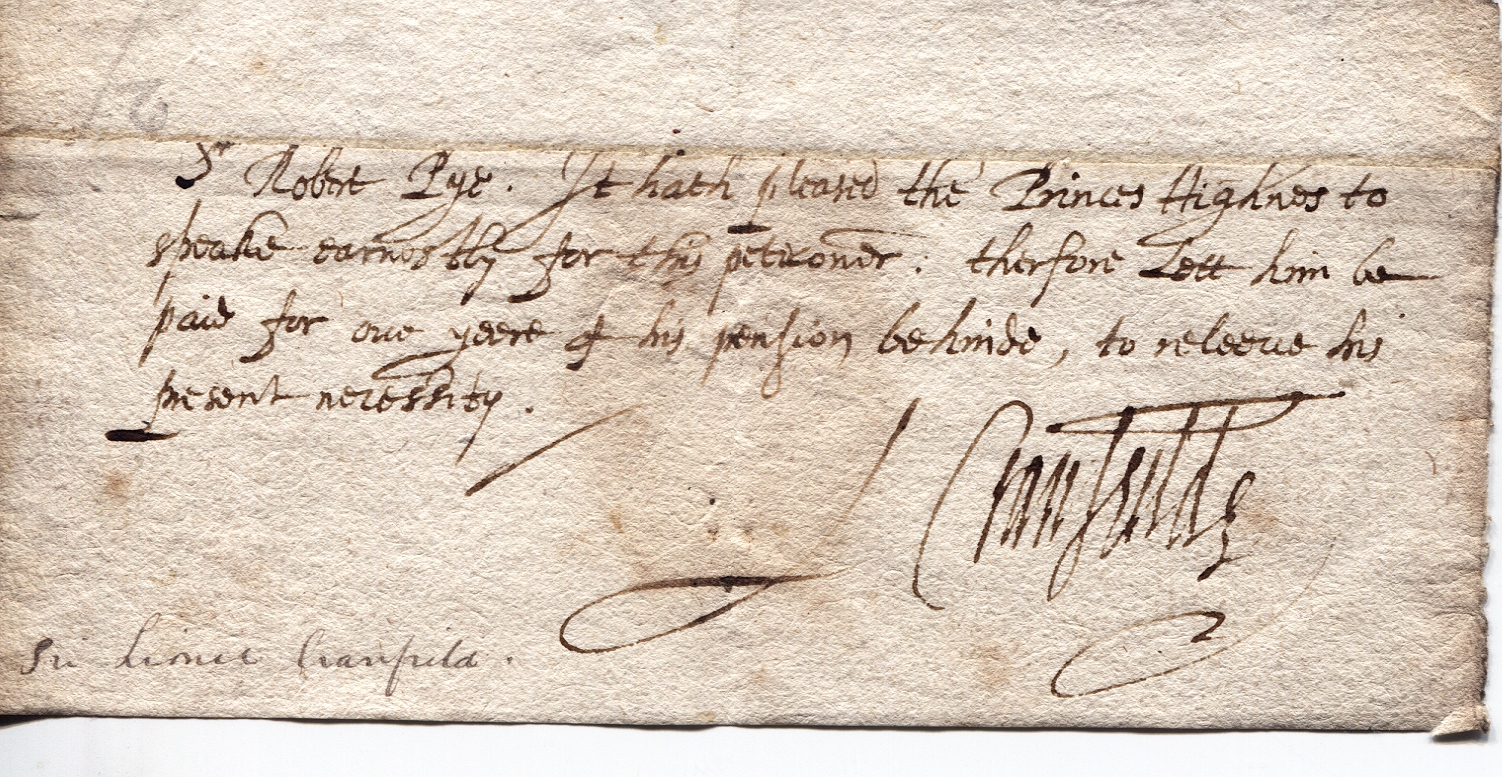 Sr Robert Pye. It hath pleased the Princes Highnes to
speake earnestly for this peticoner: therfore Lett him be
paid for one yeere of his pension behinde, to releeue his
present necessity.
Cranfeilde
Sir Lionel Cranfield.